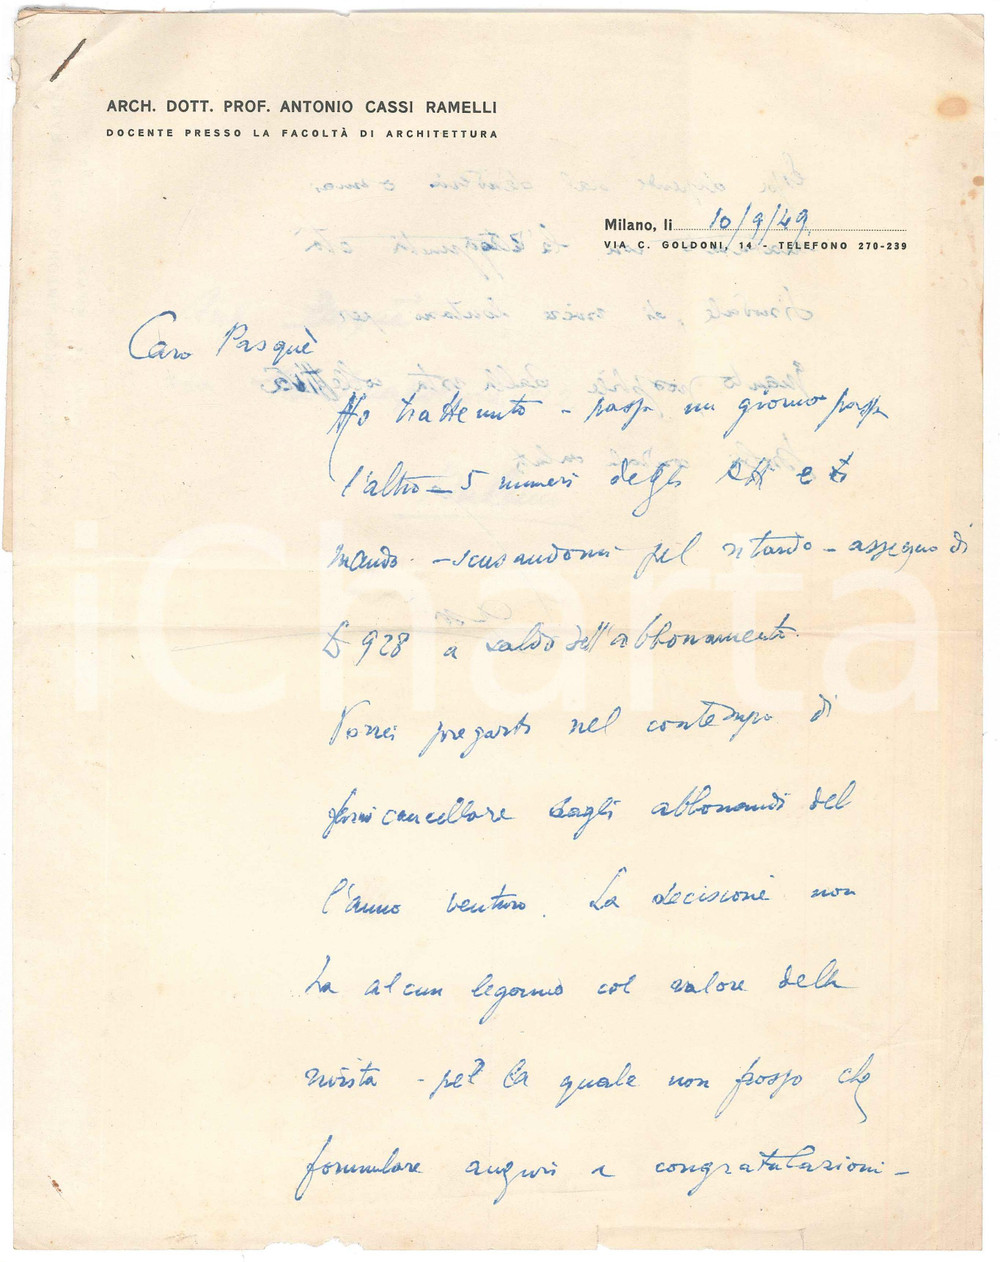 ARCH. DOTT. PROF. ANTONIO CASSI RAMELLI
DOCENTE PRESSO LA FACOLTÀ DI ARCHITETTURA
Milano, li 10/9/49
VIA C. GOLDONI, 14 - TELEFONO 270-239
Caro Pasquè
Ho trattenuto - passa un giorno passa
l'altro - 5 numeri degli e ti
mando - scusandomi pel ritardo - assegno di
£ 928 a saldo dell'abbonamento.
Vorrei pregarti nel contempo di
farmi cancellare dagli abbonandi del
l'anno venturo. La decisione non
ha alcun legame col valore della
rivista - per la quale non posso che
formulare auguri e congratulazioni -
iCharta